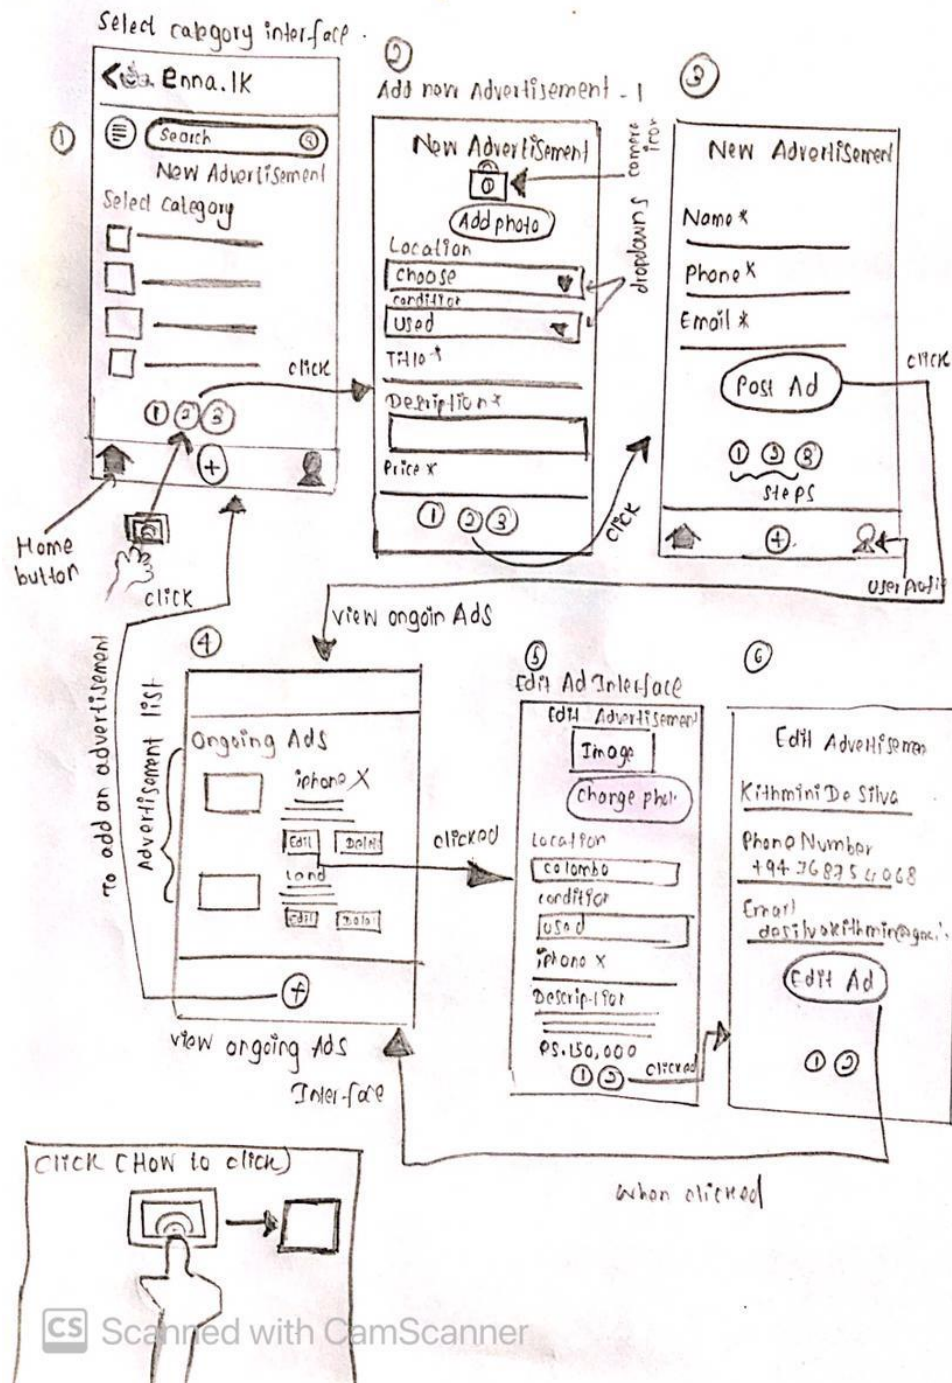 Select category interface.
①
enna.lK
Search
New Advertisement
Select category
① ② ③
click
Home
button
click
To add an advertisement
②
Add new Advertisement - 1
New Advertisement
camera
icon
Add photo
Location
choose
condition
used
dropdowns
Title *
Description *
Price *
① ② ③
click
③
New Advertisement
Name *
Phone *
Email *
Post Ad
click
steps
User Profil
view ongoin Ads
④
Advertisement list
Ongoing Ads
iphone X
Edit
Land
Edit
clicked
view ongoing Ads
Interface
⑤
Edit Ad Interface
Edit Advertisement
Image
Location
colombo
condition
used
iphone x
Description
RS.150,000
① ②
clicked
⑥
Edit Advertisemen
Kithmini De Silva
Phone Number
Email
Edit Ad
① ②
when clicked
Click (How to click)
CS Scanned with CamScanner